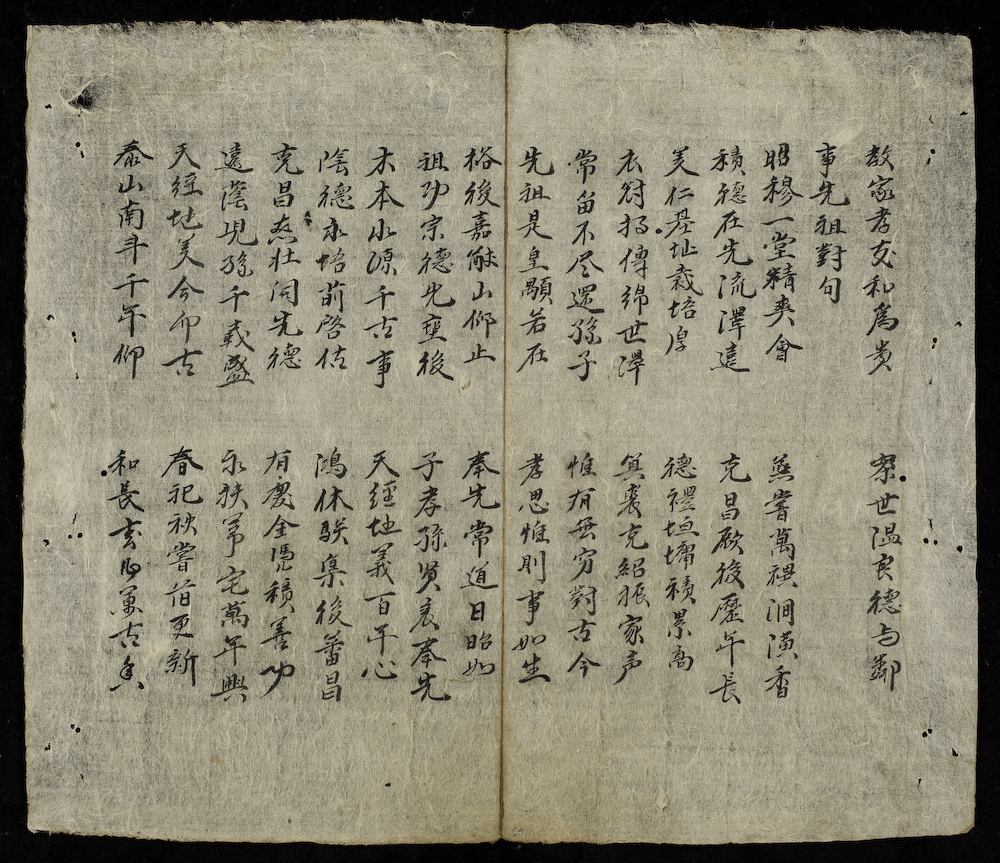 教家孝友和為貴 察世温良德与鄰
事先祖對句
昭穆一堂精爽會 烝嘗萬禩澗潢香
積德在先流澤遠 克昌厥後歷年長
美仁基址栽培厚 德禮垣墉積累高
衣冠 傳綿世澤 箕裘克紹振家声
常留不尽還孫子 惟有無穷對古今
先祖是皇顒若在 孝思惟則事如生
裕後嘉猷山仰止 奉先常道日昭如
祖功宗德先垂後 子孝孫贤裒奉先
木本水源千古事 天經地義百年心
陰德永培前啓估 鴻休駢集後蕃昌
克昌 壯洞先德 有慶全憑積善功
遠蔭児孫千載盛 永扶第宅萬年興
天經地美今而古 春祀秧嘗 更新
泰山南斗千年仰 和長 萬古